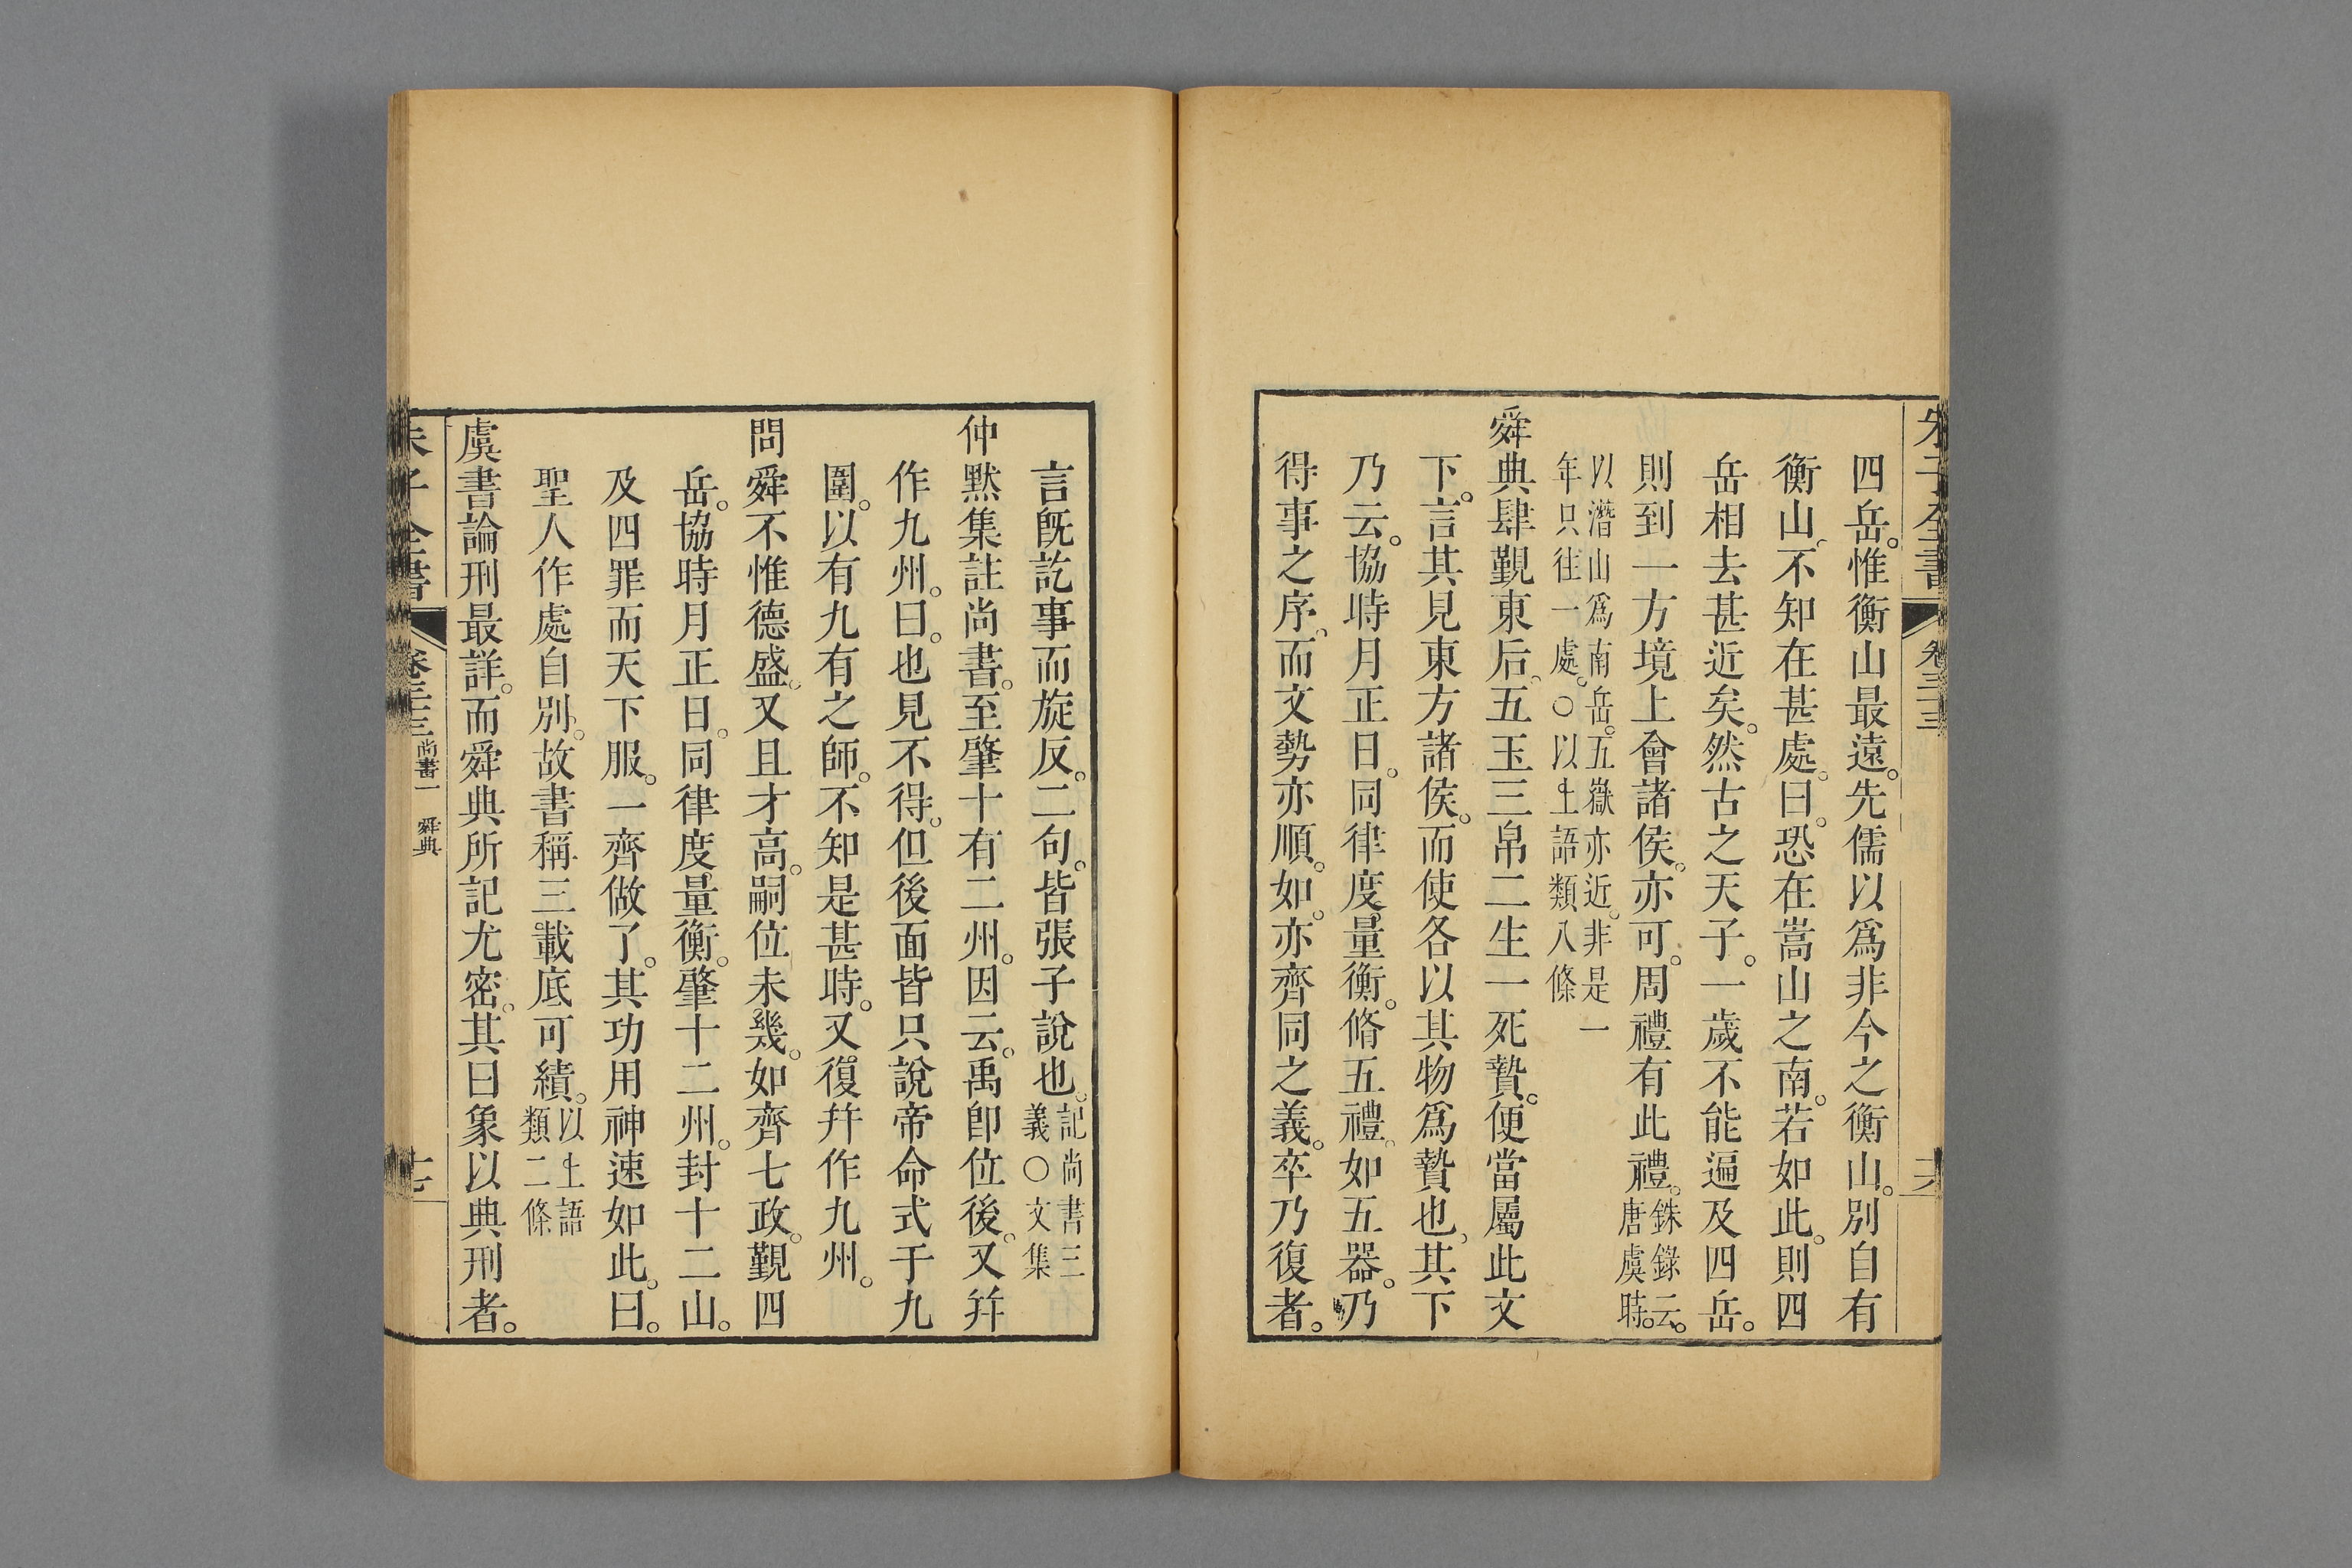 朱子全書 卷三十三
四岳。惟衡山最遠。先儒以爲非今之衡山。別自有
衡山。不知在甚處。曰。恐在嵩山之南。若如此。則四
岳相去甚近矣。然古之天子。一歲不能遍及四岳。
則到一方境上會諸侯。亦可。周禮有此禮。銖錄云。唐虞時。
以潛山爲南岳。五嶽亦近。非是一
年只往一處。○以上語類八條
舜典肆覲東后。五玉三帛二生一死贄。便當屬此文
下。言其見東方諸侯。而使各以其物爲贄也。其下
乃云。協時月正日。同律度量衡。脩五禮。如五器。乃
得事之序。而文勢亦順。如。亦齊同之義。卒乃復者。
言旣訖事而旋反。二句。皆張子說也。記尚書三義○文集
仲默集註尚書。至肇十有二州。因云。禹卽位後。又幷
作九州。曰。也見不得。但後面皆只說帝命式于九
圍。以有九有之師。不知是甚時。又復幷作九州。
問舜不惟德盛。又且才高。嗣位未幾。如齊七政。覲四
岳。協時月正日。同律度量衡。肇十二州。封十二山。
及四罪而天下服。一齊做了。其功用神速如此。曰。
聖人作處自別。故書稱三載底可績。以上語類二條
虞書論刑最詳。而舜典所記尤密。其曰象以典刑者。
朱子全書 卷三十三 尚書一 舜典 十七